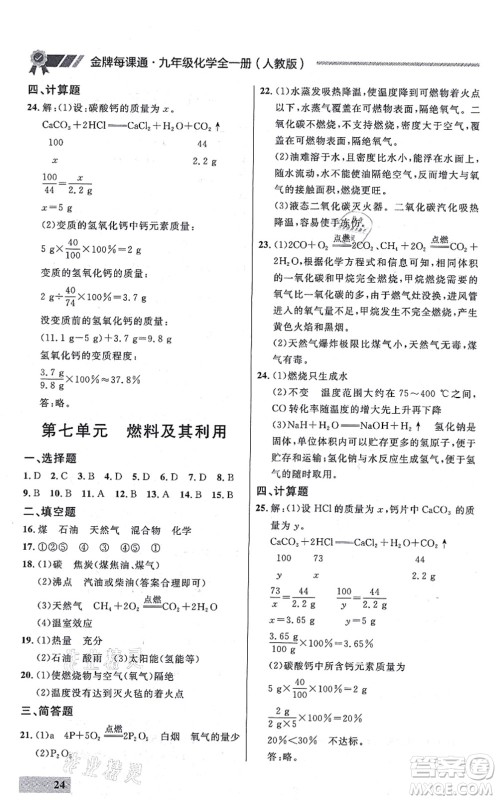 金牌每课通·九年级化学全一册(人教版)
四、计算题
24. 解:(1)设:碳酸钙的质量为 x。
CaCO₃+2HCl══CaCl₂+H₂O+CO₂↑
100 44
x 2.2 g
100/x=44/2.2 g
x=5 g
变质的氢氧化钙中钙元素质量:
5 g×40/100×100%=2 g
变质的氢氧化钙质量:
2 g÷40/74×100%=3.7 g
没变质前的氢氧化钙质量:
(11.1 g-5 g)+3.7 g=9.8 g
氢氧化钙的变质程度:
3.7 g/9.8 g×100%≈37.8%
答:略。
第七单元 燃料及其利用
一、选择题
1. D 2. D 3. C 4. B 5. A 6. B 7. D 8. D
9. B 10. B 11. A 12. C 13. D 14. D 15. A
二、填空题
16. 煤 石油 天然气 混合物 化学
17. ①②⑤ ③ ④ ①②④⑤
18. (1)碳 焦炭(煤焦油、煤气)
(2)沸点 汽油或柴油(答案合理即可)
(3)天然气 CH₄+2O₂═点燃═CO₂+2H₂O
(4)温室效应
19. (1)热量 充分
(2)石油 酸雨 (3)太阳能(氢能等)
20. (1)使燃烧物与空气(氧气)隔绝
(2)温度没有达到灭火毯的着火点
三、简答题
21. (1)a 4P+5O₂═点燃═2P₂O₅ 白烟 氧气的量少
(2)P₂O₅
22. (1)水蒸发吸热降温,使温度降到可燃物着火点以下,水蒸气覆盖在可燃物表面,隔绝氧气。二氧化碳不燃烧,不支持燃烧,密度大于空气,覆盖在可燃物表面,隔绝空气。
(2)油难溶于水,且密度比水小,能浮于水面上,随水流动,不能使油隔离空气且火势会更大。
(3)液态二氧化碳灭火器。二氧化碳汽化吸热降温,容易使手冻伤。
23. (1)2CO+O₂═点燃═2CO₂、CH₄+2O₂═点燃═CO₂+2H₂O,根据化学方程式和信息可知,相同体积的一氧化碳和甲烷完全燃烧,甲烷消耗的氧气比一氧化碳多,灶具改装后,进风管进入的空气减少,甲烷燃烧不充分,产生炭黑,所以冒黑烟。
(2)爆炸极限比天然气低,更容易爆炸;煤气有毒。
24. (1)燃烧只生成水
(2)不变 温度范围大约在75~400 ℃之间时,CO转化率随温度上升不断下降
(3)NaH+H₂O══NaOH+H₂↑ 氢化钠的固定体积可以贮存更多的氢原子,且氢化钠与水反应也生成氢气,可以贮存更多的氢气。
四、计算题
25. 解:(1)设 HCl 的质量为 x,钙片中 CaCO₃ 的质量为 y。
CaCO₃+2HCl══CaCl₂+H₂O+CO₂↑
100 73 44
y x 2.2 g
73/x=44/2.2 g
x=3.65 g
100/y=44/2.2 g
y=5 g
3.65 g/100 g×100%=3.65%
(2)碳酸钙中钙元素质量为:
5 g×40/100×100%=2 g
2 g/10 g×100%=20%
20%<30% 不达标。
答:略。
24
作业精灵
作业精灵